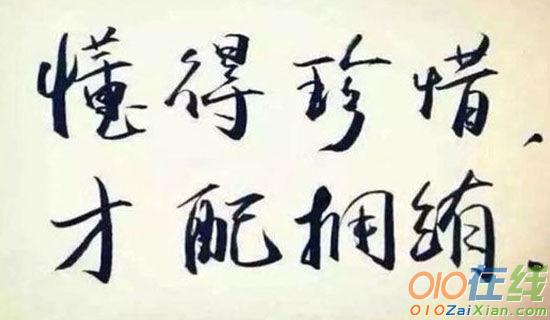 懂得珍惜、
才配拥有.
010在线
010ZaiXian.com